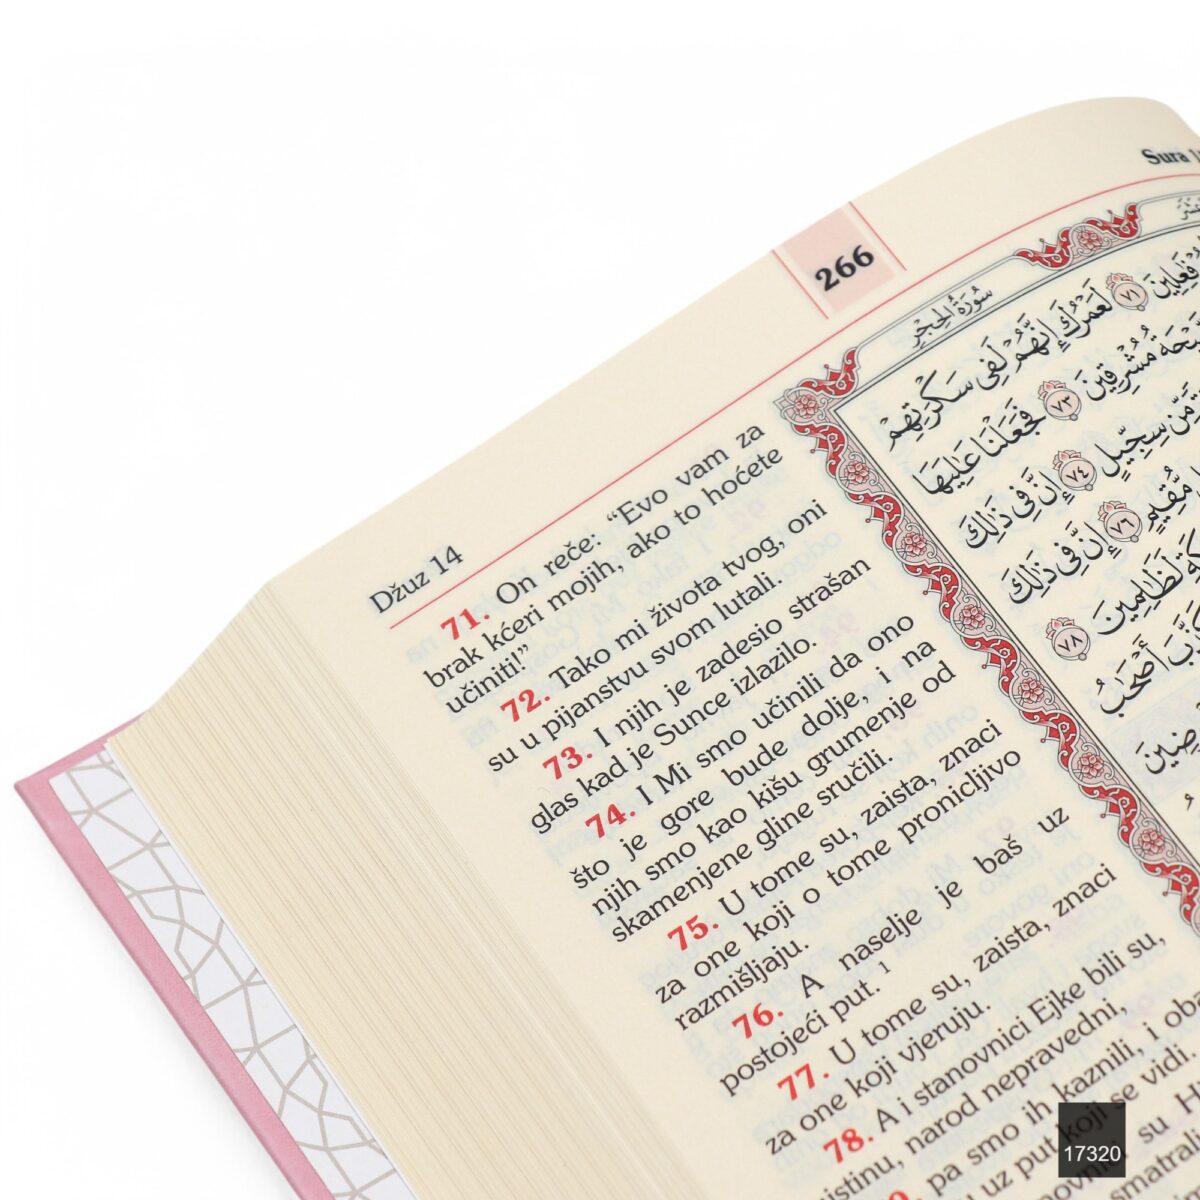 Sura
266
Džuz 14
71. On reče: “Evo vam za
brak kćeri mojih, ako to hoćete
učiniti!”
72. Tako mi života tvog, oni
su u pijanstvu svom lutali.
73. I njih je zadesio strašan
glas kad je Sunce izlazilo.
74. I Mi smo učinili da ono
što je gore bude dolje, i na
njih smo kao kišu grumenje od
skamenjene gline sručili.
75. U tome su, zaista, znaci
za one koji o tome pronicljivo
razmišljaju.
76. A naselje je baš uz
postojeći put.¹
77. U tome su, zaista, znaci
za one koji vjeruju.
78. A i stanovnici Ejke bili su,
narod nepravedni,
pa smo ih kaznili, i
su uz put koji se vidi.
su
سُورَةُ الْحِجْرِ
فَٰعِلِينَ ٧١ لَعَمْرُكَ إِنَّهُمْ لَفِى سَكْرَتِهِمْ
مُشْرِقِينَ ٧٣ فَجَعَلْنَا عَٰلِيَهَا
مِّن سِجِّيلٍ ٧٤ إِنَّ فِى ذَٰلِكَ
مُّقِيمٍ ٧٦ إِنَّ فِى ذَٰلِكَ
لَظَٰلِمِينَ ٧٨
أَصْحَٰبُ
17320